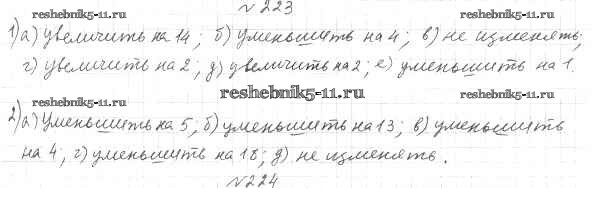 № 223
reshebnik5-11.ru
1) а) увеличить на 14; б) уменьшить на 4; в) не изменять;
г) увеличить на 2; д) увеличить на 2; е) уменьшить на 1.
reshebnik5-11.ru
reshebnik5-11.ru reshebnik5-11.ru
2) а) Уменьшить на 5; б) уменьшить на 13; в) уменьшить
на 4; г) уменьшить на 18; д) не изменять.
№ 224